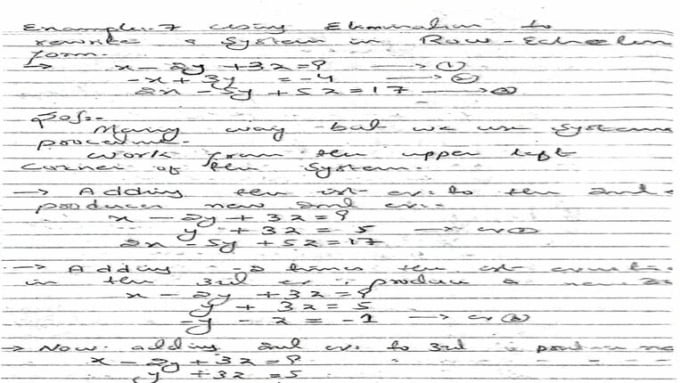 Example:-7 using Elimination to
rewrite a System in Row-Echelon
form.
→ x - 2y + 3z = 9 → ①
-x + 3y = -4 → ②
2x - 5y + 5z = 17 → ③
Many way but we use Systema
procedure.
work from the upper left
corner of the System.
→ Adding the 1st ev. to the 2nd
produces new 2nd ev.
x - 2y + 3z = 9
y + 3z = 5 → ev ②
2x - 5y + 5z = 17
→ Adding -2 times the 1st
in the 3rd ev: produce a
x - 2y + 3z = 9
y + 3z = 5
-y - z = -1 → ev ③
→ Now adding 2nd ev. to 3rd produce
x - 2y + 3z = 9
y + 3z = 5